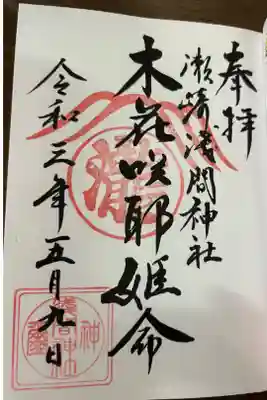 奉拝
瀬崎浅間神社
木花咲耶姫命
令和三年五月九日